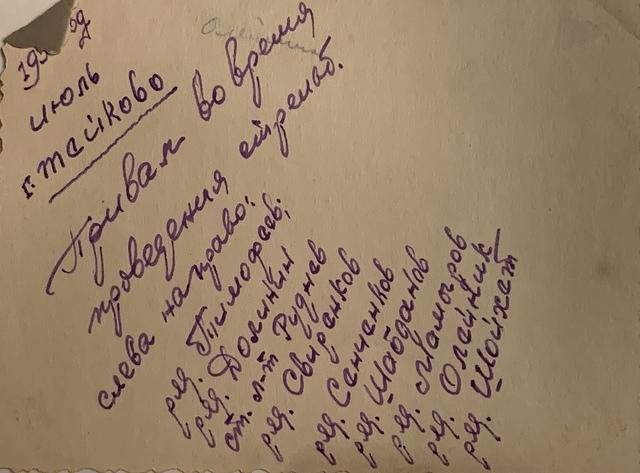 июль
г. Тейково
Привал во время
проведения стрельб.
слева направо:
ряд. Тимофеев;
ряд. Долинин
ст. л-т Руднев
ряд. Свиренков
ряд. Санченков
ряд. Шабданов
ряд. Мамыров
ряд. Олейник
ряд. Шойхет